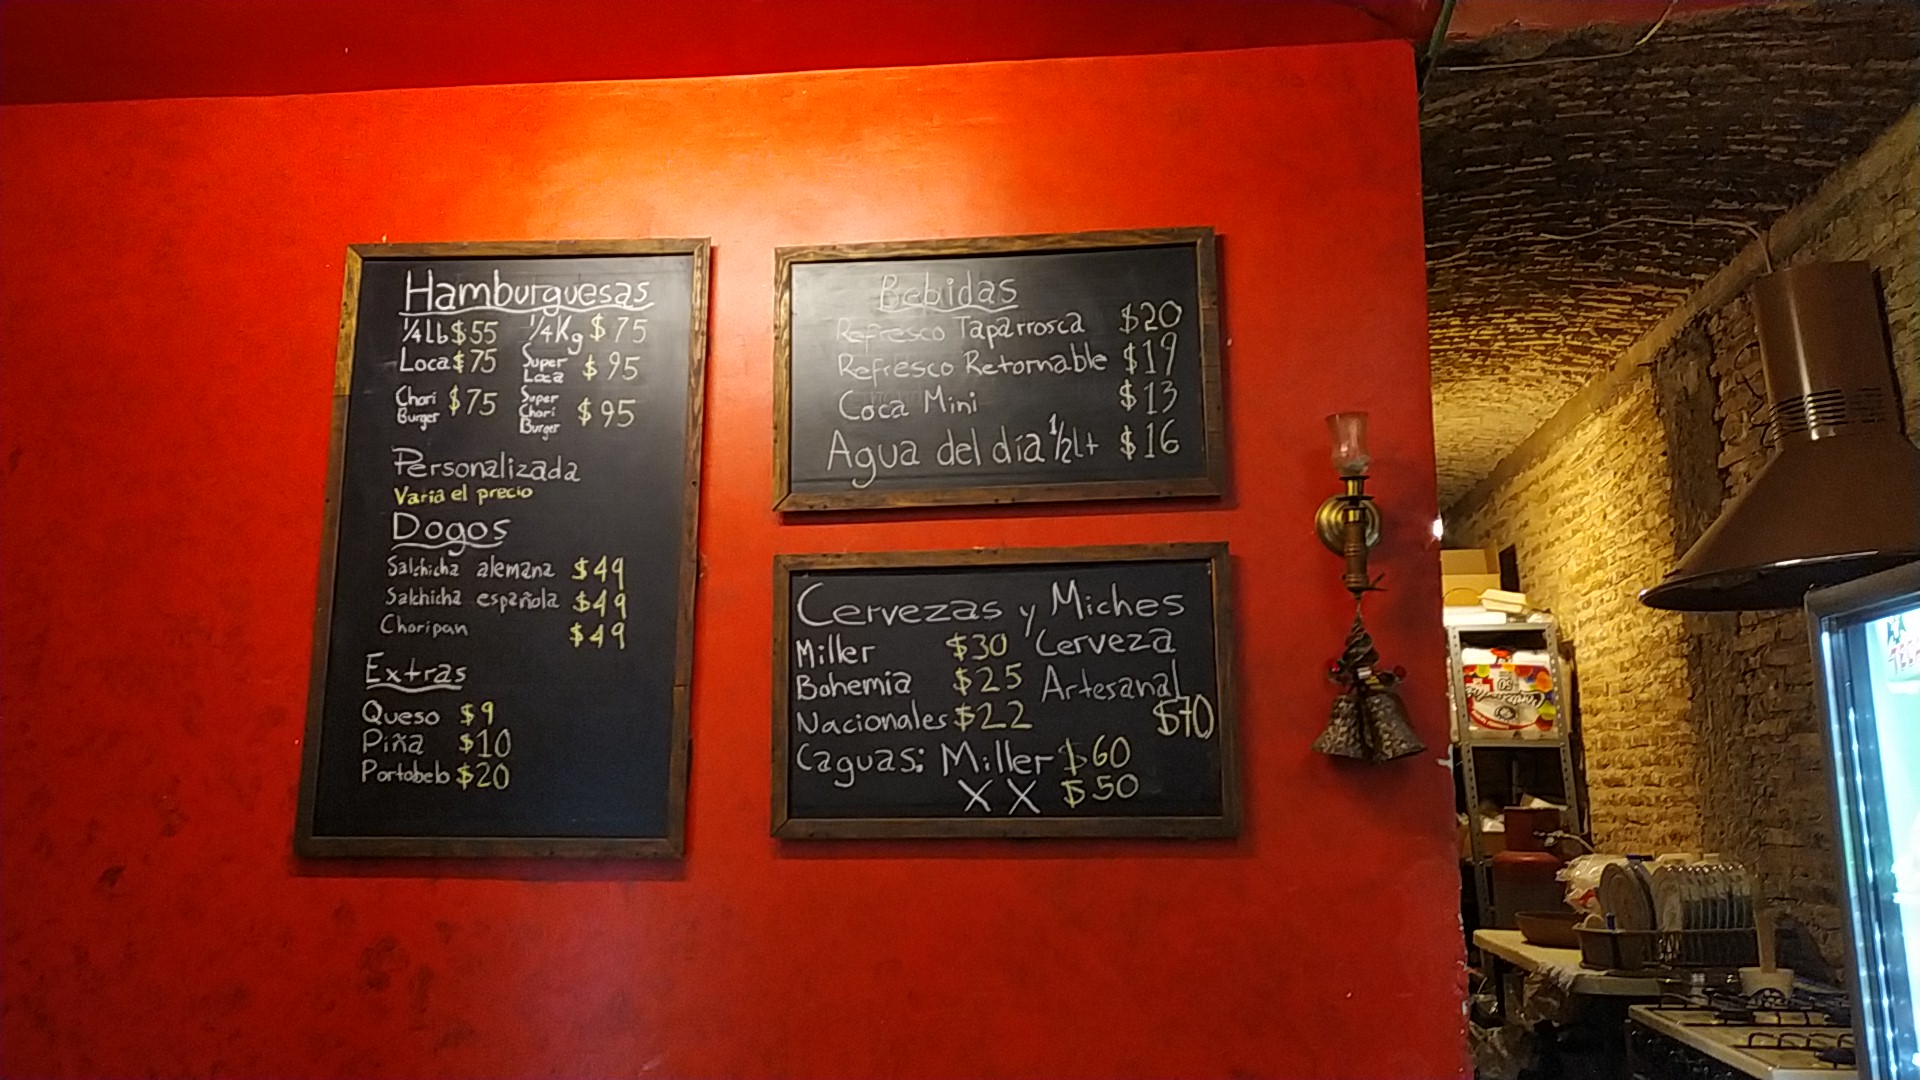 Hamburguesas
1/4Lb $55 1/4Kg $75
Loca $75 Super Loca $95
Chori Burger $75 Super Chori Burger $95
Personalizada
Varia el precio
Dogos
Salchicha alemana $49
Salchicha española $49
Choripan $49
Extras
Queso $9
Piña $10
Portobelo $20
Bebidas
Refresco Taparrosca $20
Refresco Retornable $19
Coca Mini $13
Agua del día 1/2lt $16
Cervezas y Miches
Miller $30 Cerveza
Bohemia $25 Artesanal
Nacionales $22 $70
Caguas: Miller $60
XX $50